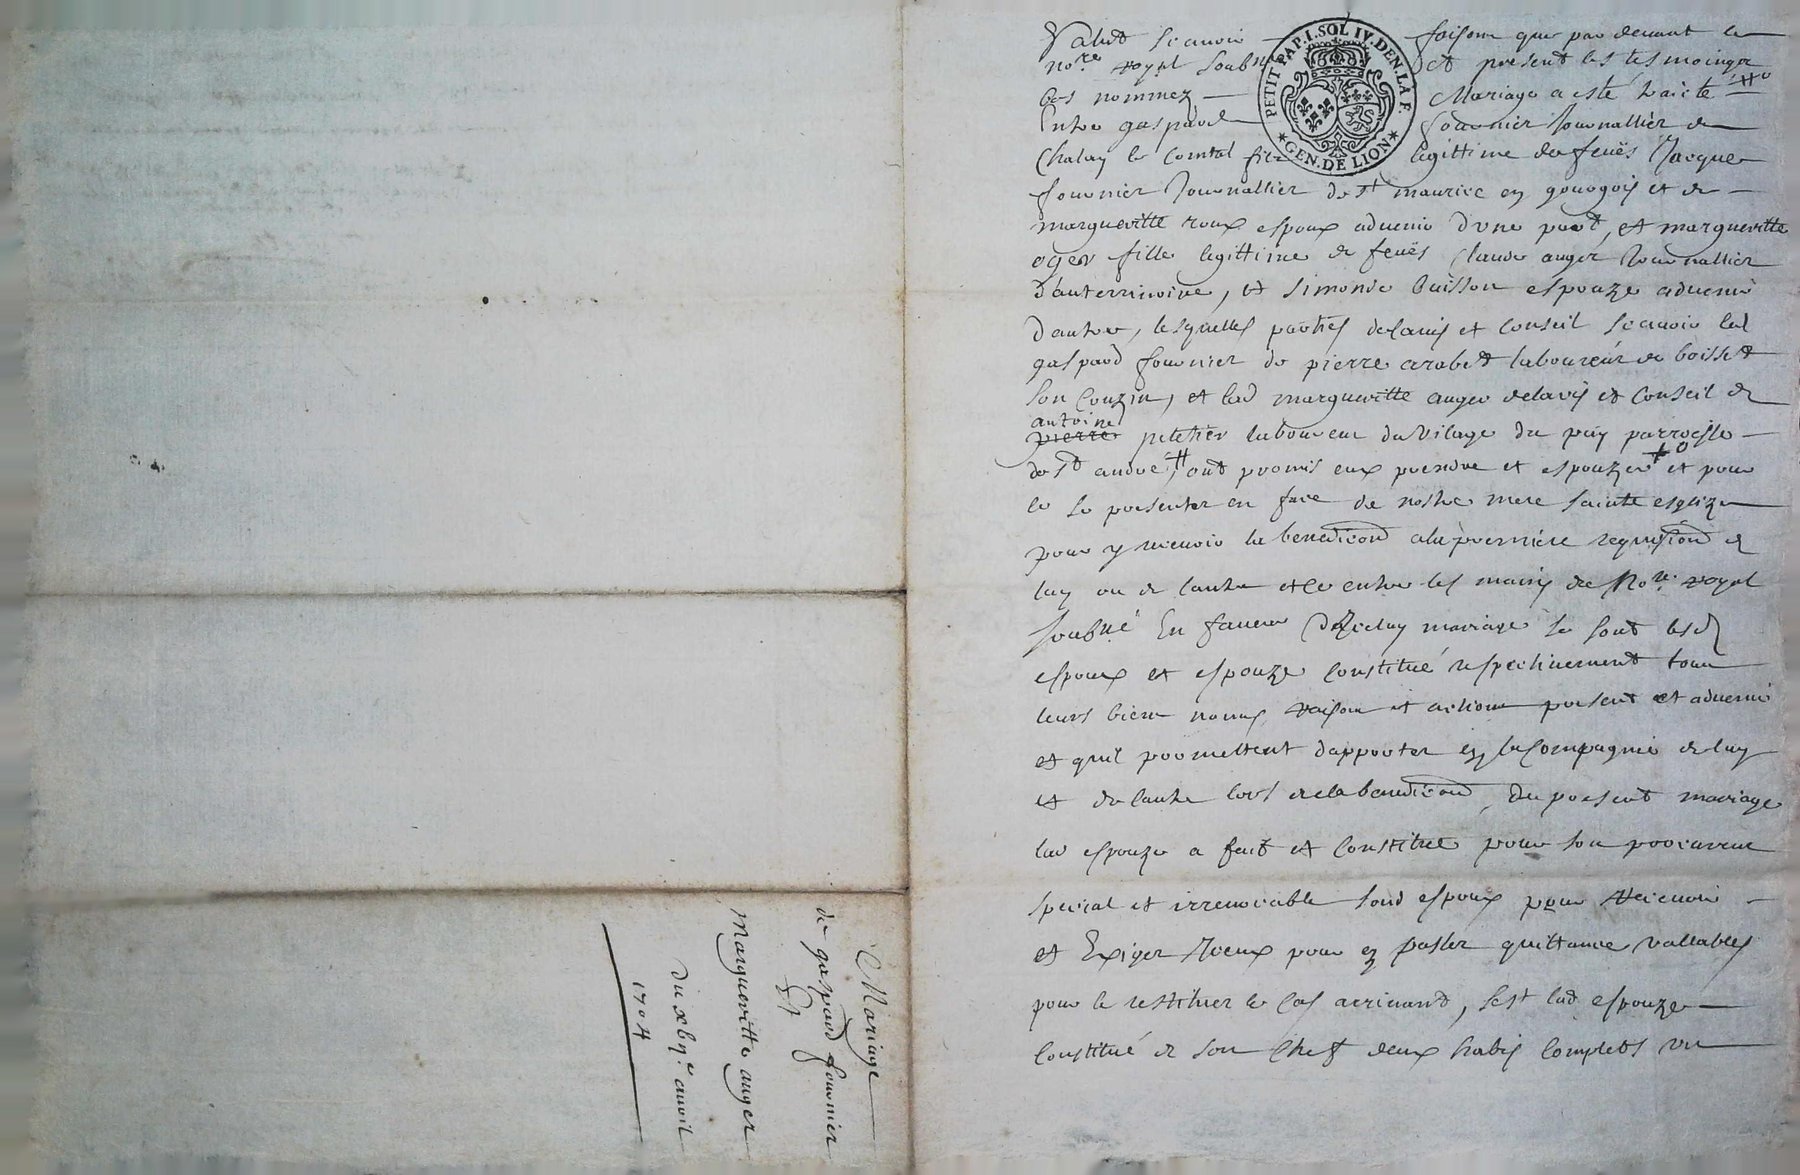 Mariage
de gaspard fournier
Et
Margueritte auger
du xbjᵉ auril
1704
PETIT PAP. I. SOL IV. DEN. LA F.
GEN. DE LION
Salut scauoir faisons que par deuant le
noʳᵉ royal soubnᵉ et present les tesmoings
bas nommez Mariage a esté traicté
Entre gaspard fournier Journallier de
Chalain le Comtal filz legittime de feuës Jacques
fournier Journallier de sᵗ maurice en gourgois et de
margueritte roux espoux aduenir d'une part, et margueritte
oger fille legittime de feuës Claude auger Journallier
d'auterriuoire, et simonde buisson espouze aduenir
d'autre, lesquelles parties de l'auis et conseil scauoir led
gaspard fournier de pierre crabet laboureur de boisset
son couzin, et lad margueritte auger de lavis et conseil de
antoine
pierre peletier laboureur du vilage du puy parroisse
de sᵗ andre, ont promis eux prendre et espouzer et pour
ce se presenter en face de nostre mere sainte esglize
pour y receuoir la benediction a la premiere requisition de
lun ou de lautre et ce entre les mains de Noʳᵉ royal
soubné En faueur duquel mariage se sont lesd
espoux et espouze constitué respectiuement tous
leurs biens noms raisons et actions present et aduenir
et quil promettent d'apporter en la compagnie de lun
et de lautre lors de la benediction, du present mariage
lad espouze a fait et constitué pour son procureur
special et irreuocable sond espoux pour receuoir
et Exiger Jceux pour en passer quittance vallables
pour le restituer le cas arriuant, s'est lad. espouze
constitué de son chef deux habis complets un